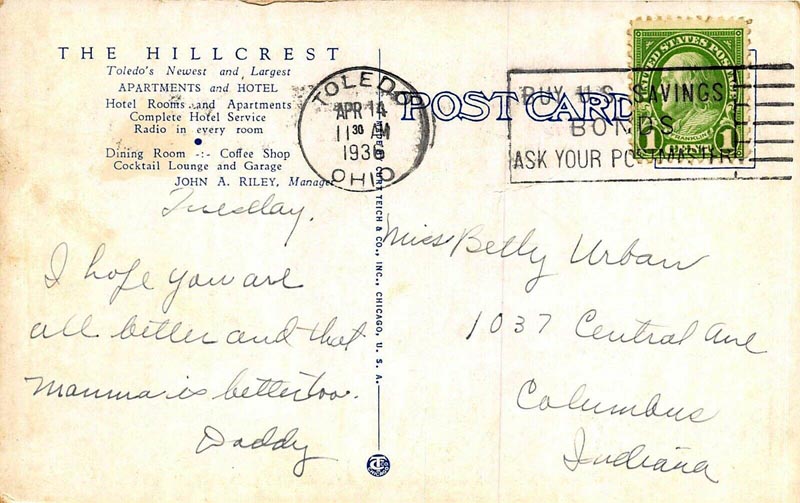 THE HILLCREST
Toledo's Newest and Largest
APARTMENTS and HOTEL
Hotel Rooms and Apartments
Complete Hotel Service
Radio in every room
Dining Room -:- Coffee Shop
Cocktail Lounge and Garage
JOHN A. RILEY, Manager
Tuesday.
I hope you are
all better and that
Mamma is better too.
Daddy
TOLEDO
APR 14
11 30 AM
1936
OHIO
CURT TEICH & CO., INC., CHICAGO, U. S. A.
POST CARD
BUY U.S. SAVINGS
BONDS
ASK YOUR POSTMASTER
UNITED STATES POSTAGE
FRANKLIN
1 CENT 1
Miss Betty Urban
1037 Central Ave
Columbus
Indiana